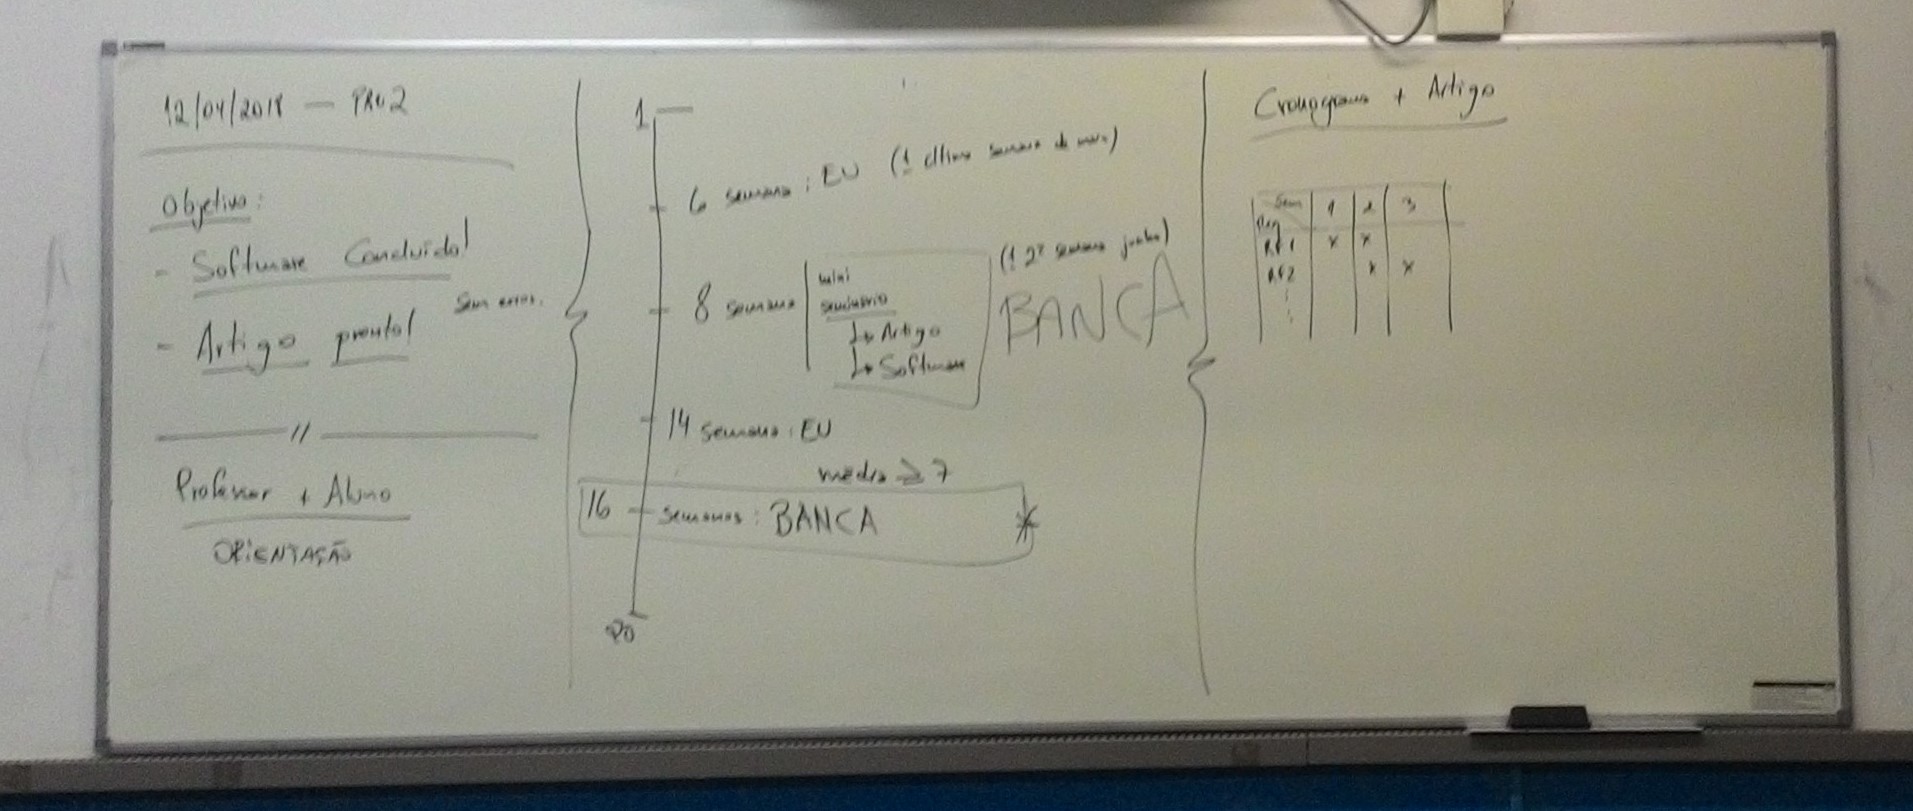 12/04/2018 — PRO2
Objetivo:
- Software Concluído!
- Artigo pronto! sem erros.
//
Professor + Aluno
ORIENTAÇÃO
1
6 semana : EU (1 última semana de maio)
8 semana
mini
seminário
↳ Artigo
↳ Software
(1 2ª semana junho)
BANCA
14 semana : EU
média ≥ 7
16 semanas : BANCA *
20
Cronograma + Artigo
Sem 1 2 3
Req
RF1 x x
RF2 x x